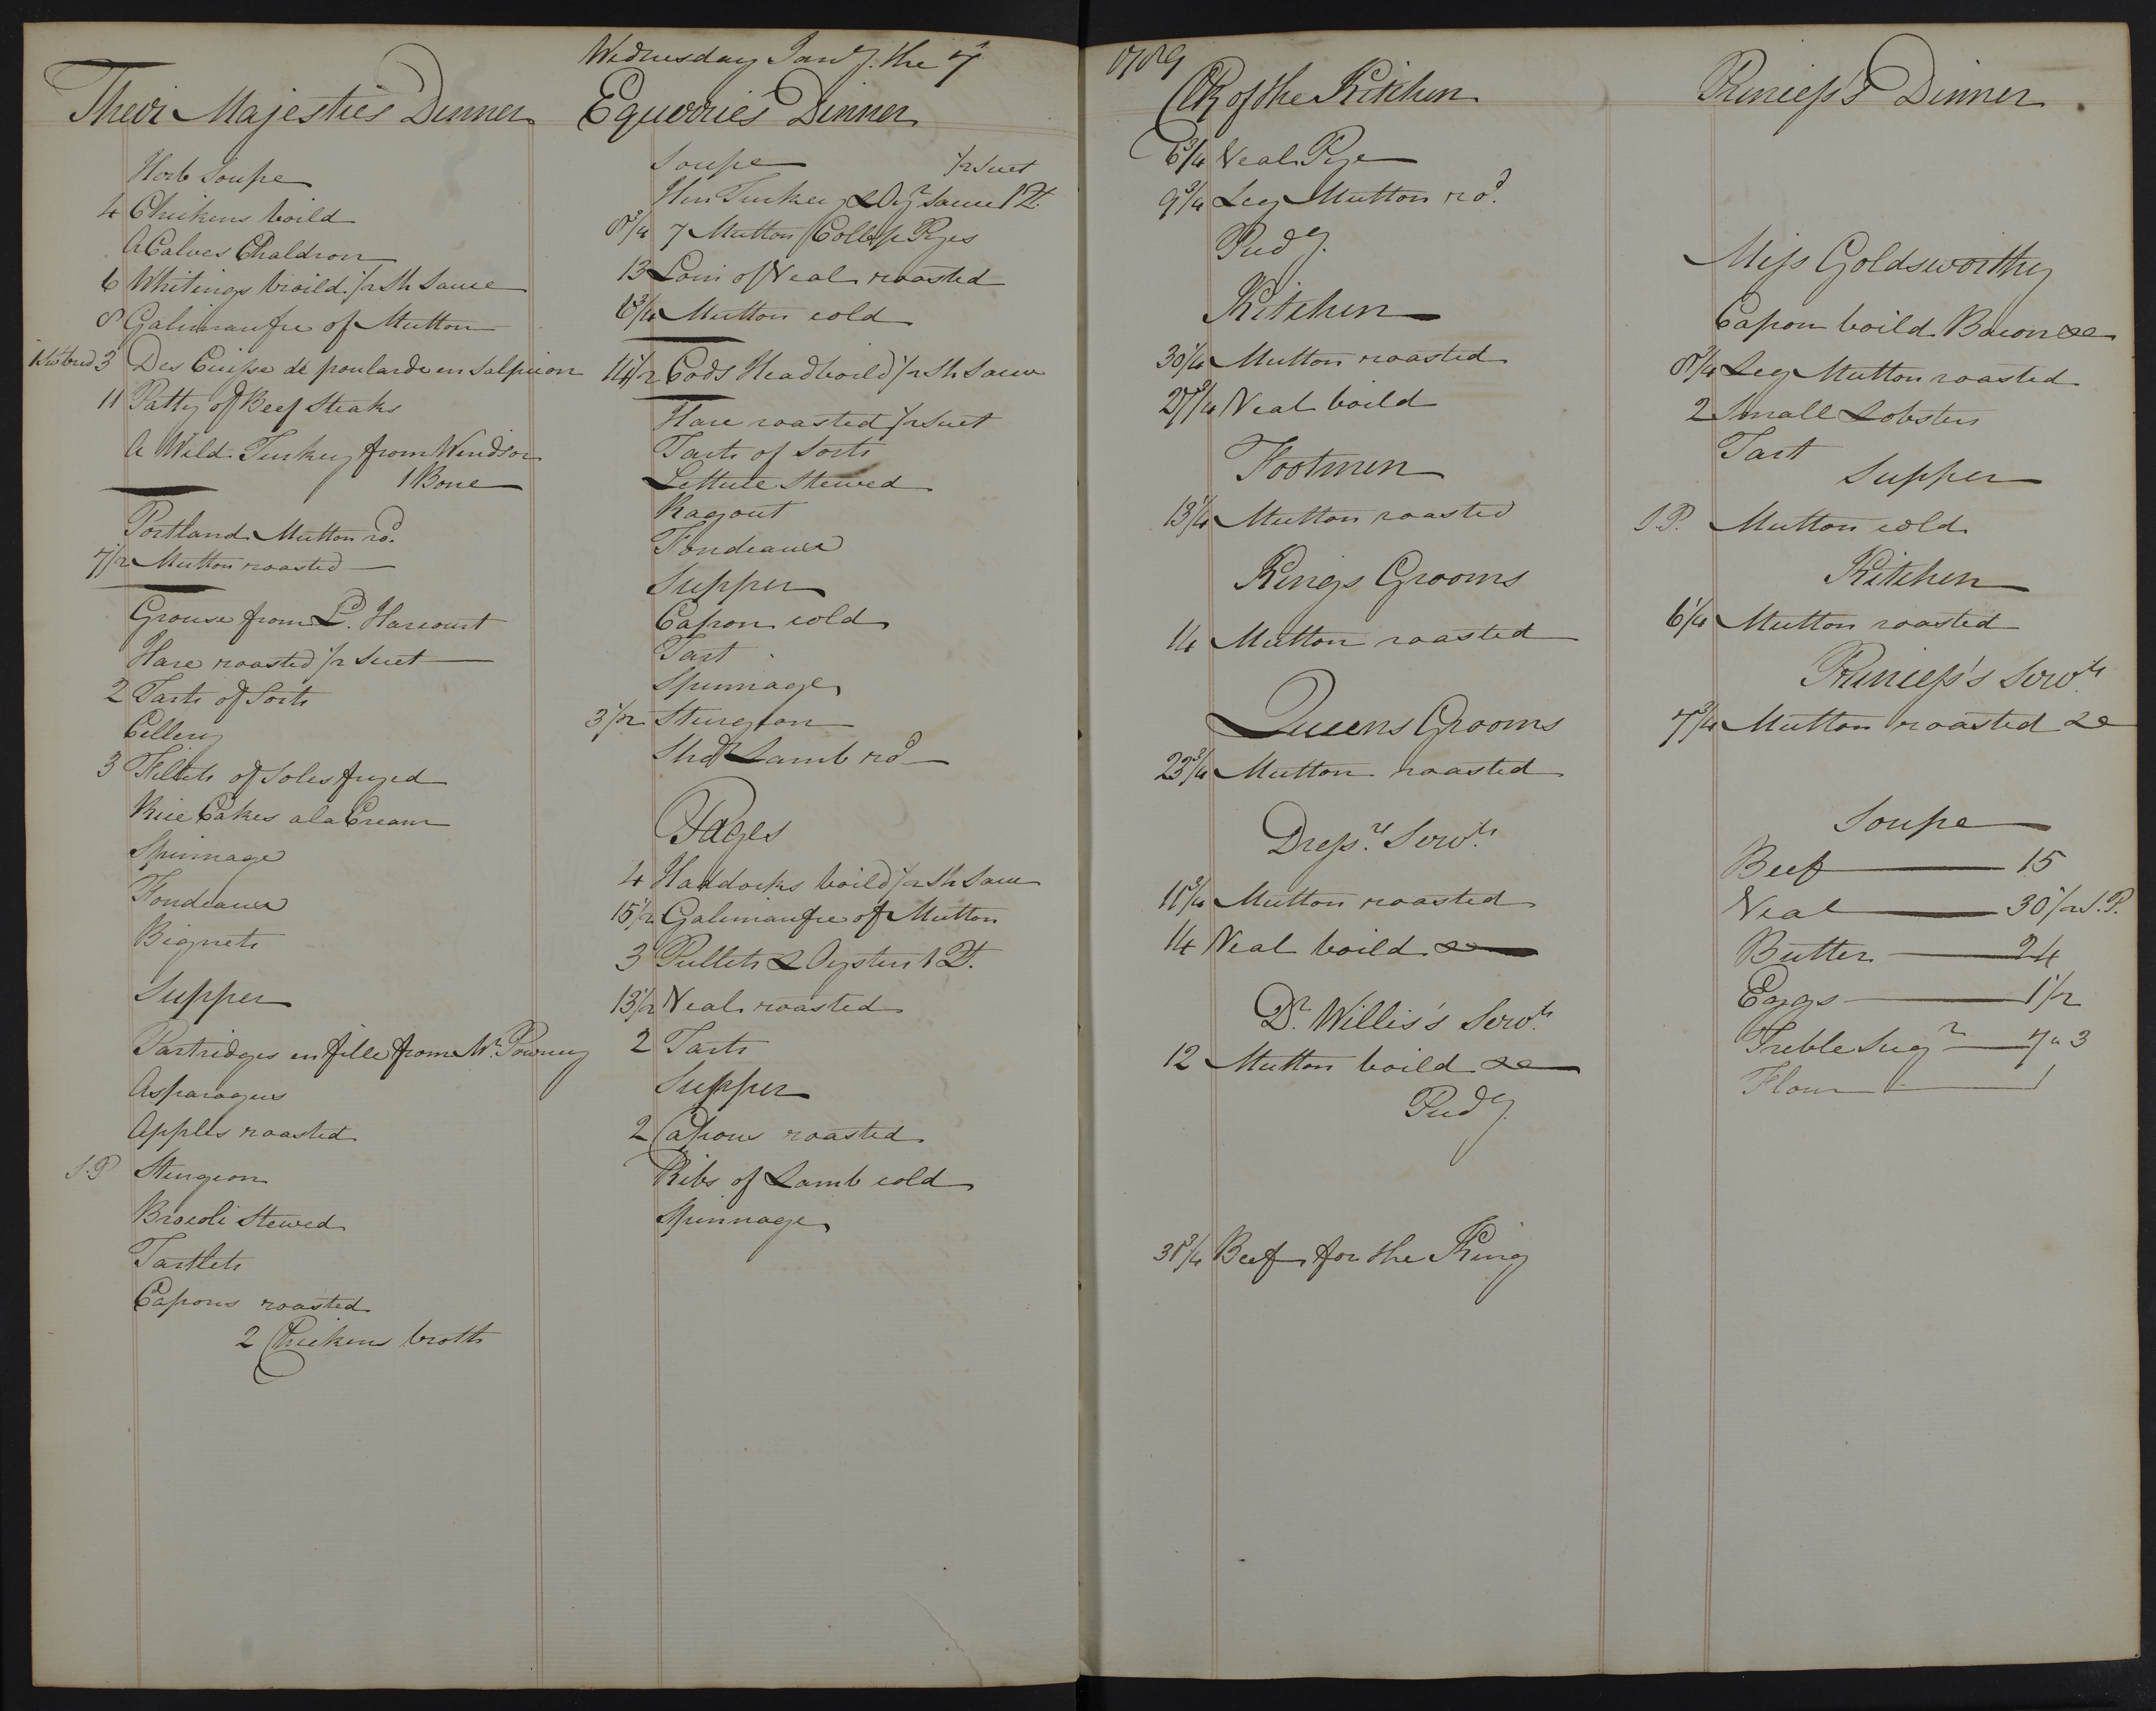 Wednesday Jan.y the 7
1789
Their Majesties Dinner
Herb Soupe
4 Chickens boild
A Calves Chaldron
6 Whitings broild 1/2 Sh Sauce
8 Galimaufre of Mutton
3 Des Cuisse de poularde en Salpicon
11 Patty of Beef Steaks
A Wild Turkey from Windsor
1 Bone
Portland Mutton ro.d
7 1/2 Mutton roasted
Grouse from L.d Harcourt
Hare roasted 1/2 Suet
2 Tarts of Sorts
Cellery
3 Fillets of Soles fryed
Rice Cakes a la Cream
Spinnage
Fondeaux
Bignets
Supper
Partridges en fille from Mr. Powney
Asparagus
Apples roasted
S.P Sturgeon
Brocoli Stewed
Tartlets
Capons roasted
2 Chickens broth
Equerries Dinner
Soupe 1/2 Suet
Hen Turkey & Oyr Sauce 1 Pt.
8 3/4 7 Mutton Collop Pyes
13 Loin of Veal roasted
Mutton cold
14 1/2 Cods Head boild 1/2 Sh Sauce
Hare roasted 1/2 Suet
Tarts of Sorts
Lettuce Stewed
Ragout
Fondeaux
Supper
Capon cold
Tart
Spinnage
3 1/2 Sturgeon
Shdr Lamb rod
Pages
4 Haddocks boild 1/2 Sh Sauce
15 1/2 Galimaufre of Mutton
3 Pullets & Oysters 1 Pt.
13 1/2 Veal roasted
2 Tarts
Supper
2 Capons roasted
Ribs of Lamb cold
Spinnage
Clk of the Kitchen
6 3/4 Veal Pye
9 3/4 Leg Mutton ro.d
Pudg.
Kitchen
30 1/4 Mutton roasted
Veal boild
Footmen
13 1/4 Mutton roasted
Kings Grooms
14 Mutton roasted
Queens Grooms
23 3/4 Mutton roasted
Dress.rs Serv.ts
11 3/4 Mutton roasted
14 Veal boild &c
Dr. Willis's Serv.ts
12 Mutton boild &c
Pudg.
31 3/4 Beef for the King
Princess's Dinner
Miss Goldsworthy
Capon boild Bacon &c
8 3/4 Leg Mutton roasted
2 Small Lobsters
Tart
Supper
S.P. Mutton cold
Kitchen
6 1/4 Mutton roasted
Princess's Serv.ts
7 3/4 Mutton roasted &c
Soupe
Beef 15
Veal 30 1/2 S.P.
Butter 24
Eggs 1 1/2
Treble Sugr 7 " 3
Flour 1